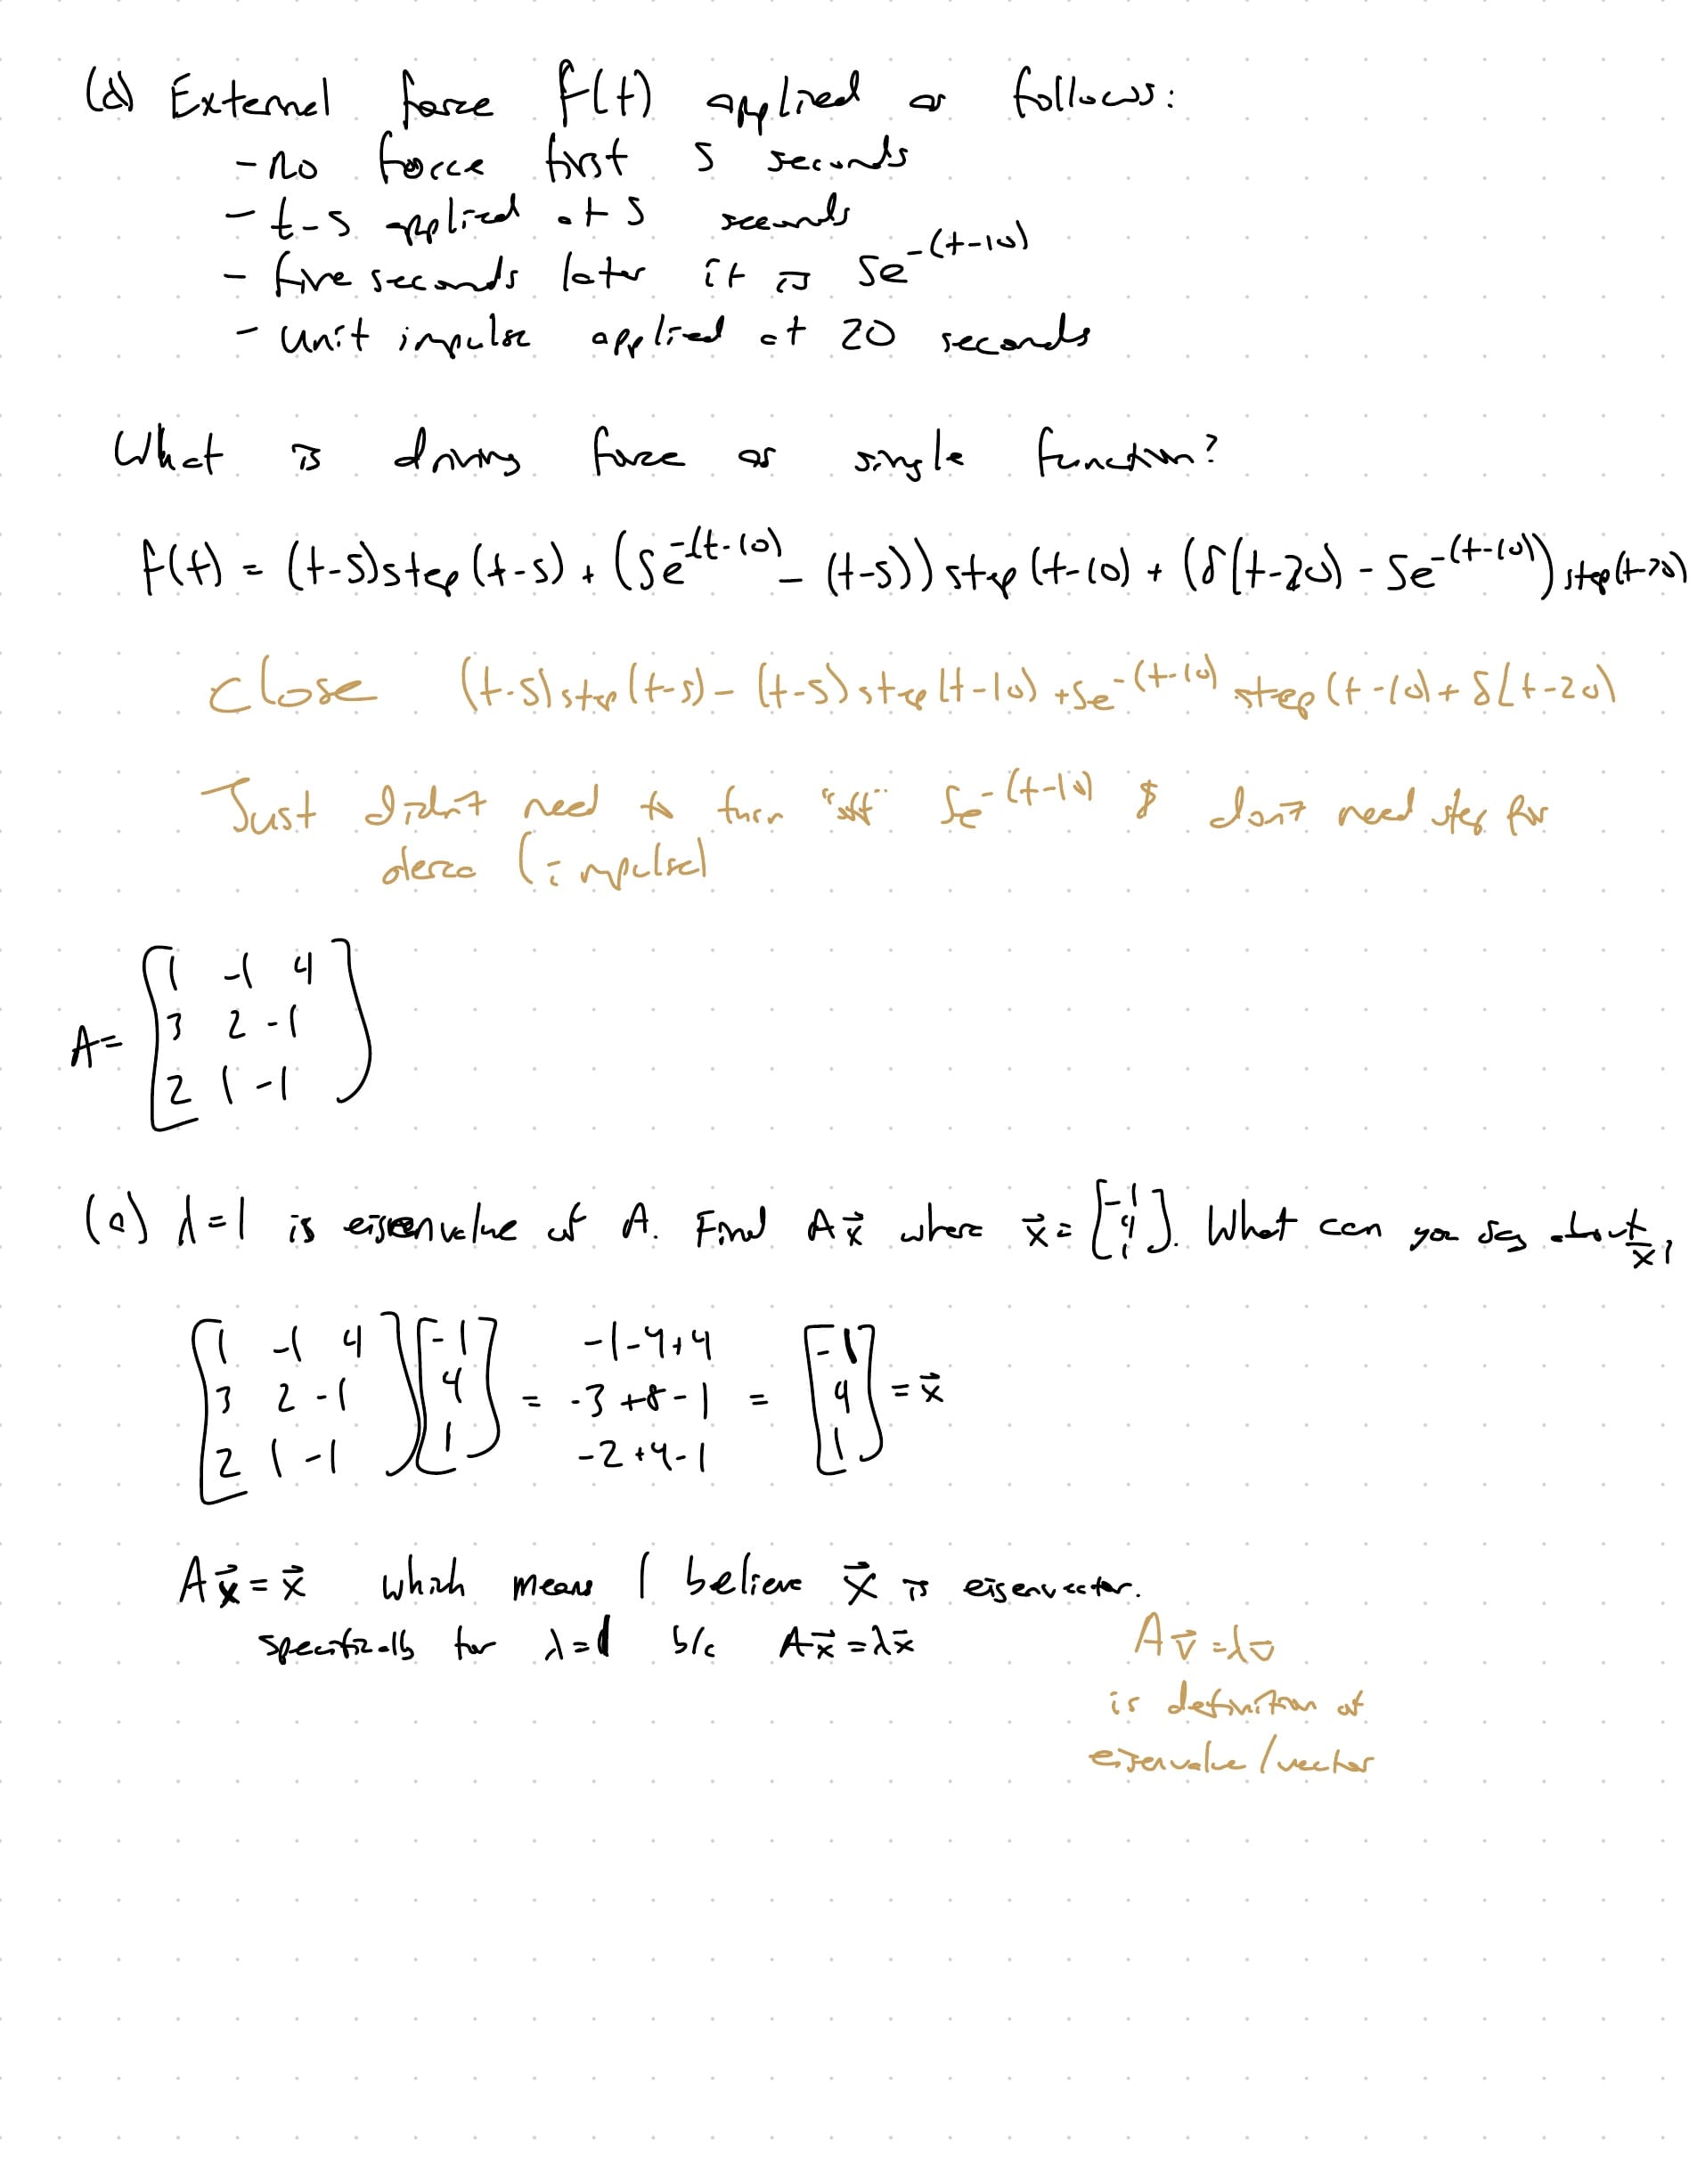 (d) External force f(t) applied as follows:
- no force first 5 seconds
- t-5 applied at 5 seconds
- five seconds later it is 5e^{-(t-10)}
- unit impulse applied at 20 seconds
What is driving force as single function?
f(t) = (t-5)step(t-5) + (5e^{-(t-10)} - (t-5)) step(t-10) + (δ(t-20) - 5e^{-(t-10)}) step(t-20)
Close (t-5)step(t-5) - (t-5)step(t-10) + 5e^{-(t-10)} step(t-10) + δ(t-20)
Just didn't need to turn "off" 5e^{-(t-10)} & don't need step for
(impulse)
A = [1 -1 4
3 2 -1
2 1 -1]
(a) λ=1 is eigenvalue of A. Find Ax⃗ where x⃗ = [-1 4 1]. What can you say about x⃗?
[1 -1 4] [-1] = -1-4+4 = [-1] = x⃗
[3 2 -1] [4] -3+8-1 [4]
[2 1 -1] [1] -2+4-1 [1]
Ax⃗ = x⃗ which means I believe x⃗ is eigenvector.
specifically for λ=1 b/c Ax⃗ = λx⃗
Av⃗ = λv⃗
is definition of
eigenvalue/vector